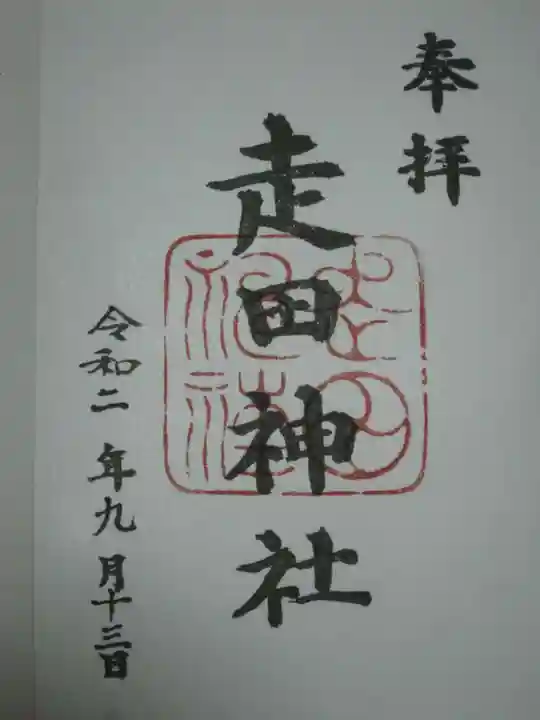 奉拝
走田神社
令和二年九月十三日